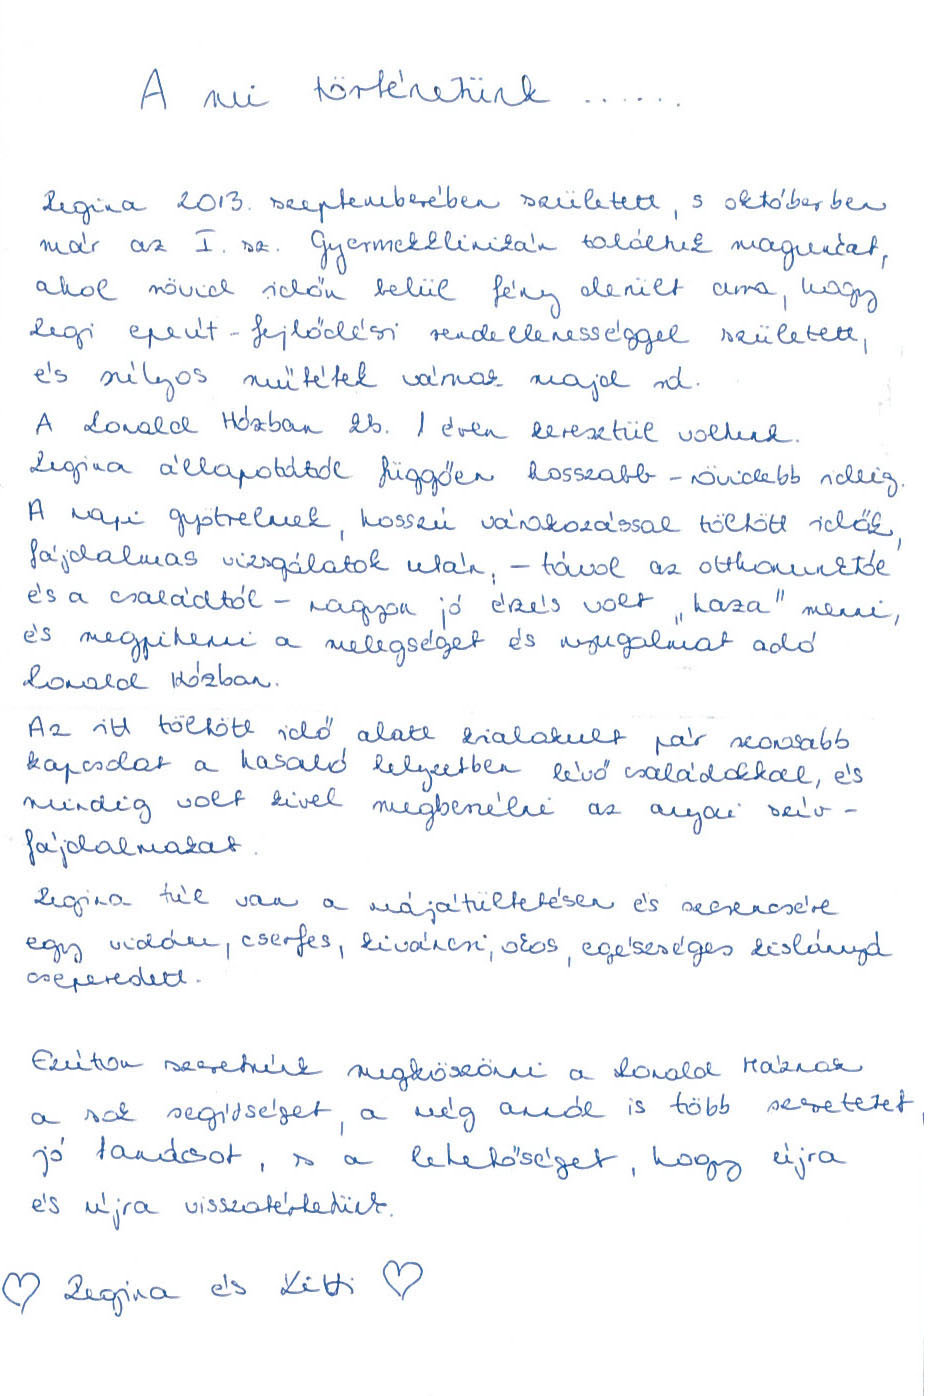 A mi történetünk ......
Regina 2013. szeptemberében született, s októberben
már az I. sz. Gyermekklinikán találtuk magunkat,
ahol rövid időn belül fény derült arra, hogy
Regi epeút-fejlődési rendellenességgel született,
és súlyos műtétek várnak majd rá.
A Ronald Házban kb. 1 éven keresztül voltunk.
Regina állapotától függően hosszabb - rövidebb ideig.
A napi gyötrelmek, hosszú várakozással töltött idők,
fájdalmas vizsgálatok után, - távol az otthonunktól
és a családtól - nagyon jó érzés volt "haza" menni,
és megpihenni a melegséget és nyugalmat adó
Ronald Házban.
Az itt töltött idő alatt kialakult pár szorosabb
kapcsolat a hasonló helyzetben lévő családokkal, és
mindig volt kivel megbeszélni az anyai szív -
fájdalmakat.
Regina túl van a májátültetésen és szerencsére
egy vidám, cserfes, kiváncsi, okos, egészséges kislánnyá
cseperedett.
Ezúton szeretnénk megköszönni a Ronald Háznak
a sok segítséget, a még annál is több szeretetet,
jó tanácsot, s a lehetőséget, hogy újra
és újra visszatérhetünk.
♡ Regina és Kitti ♡